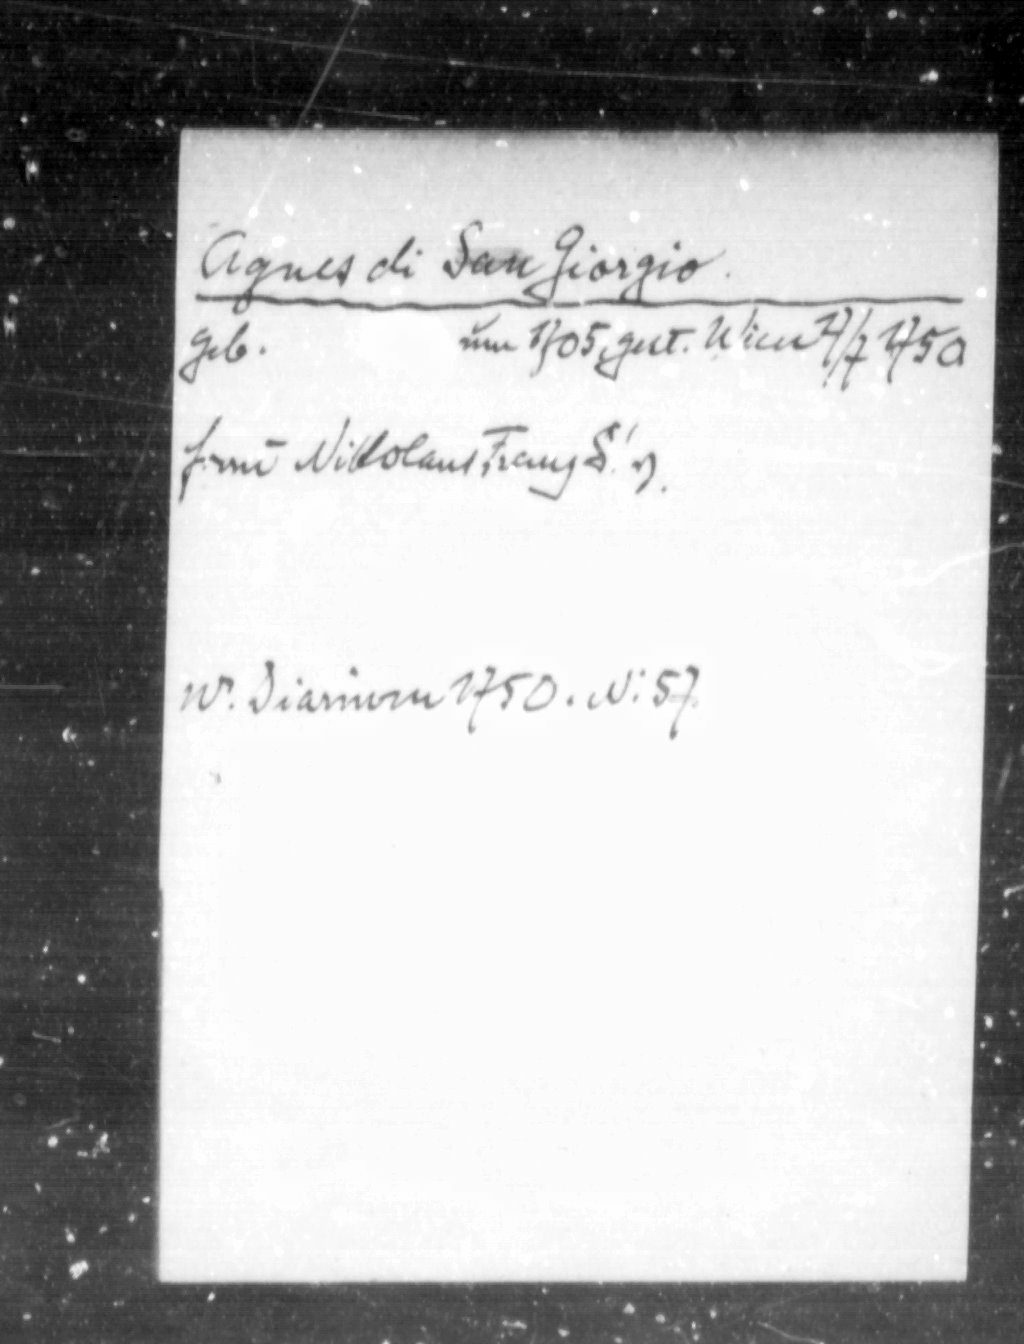 Agnes di San Giorgio.
geb. um 1705, gest. Wien 7/7 1750
Nikolaus Franz S.
W. Diarium 1750. N: 57.